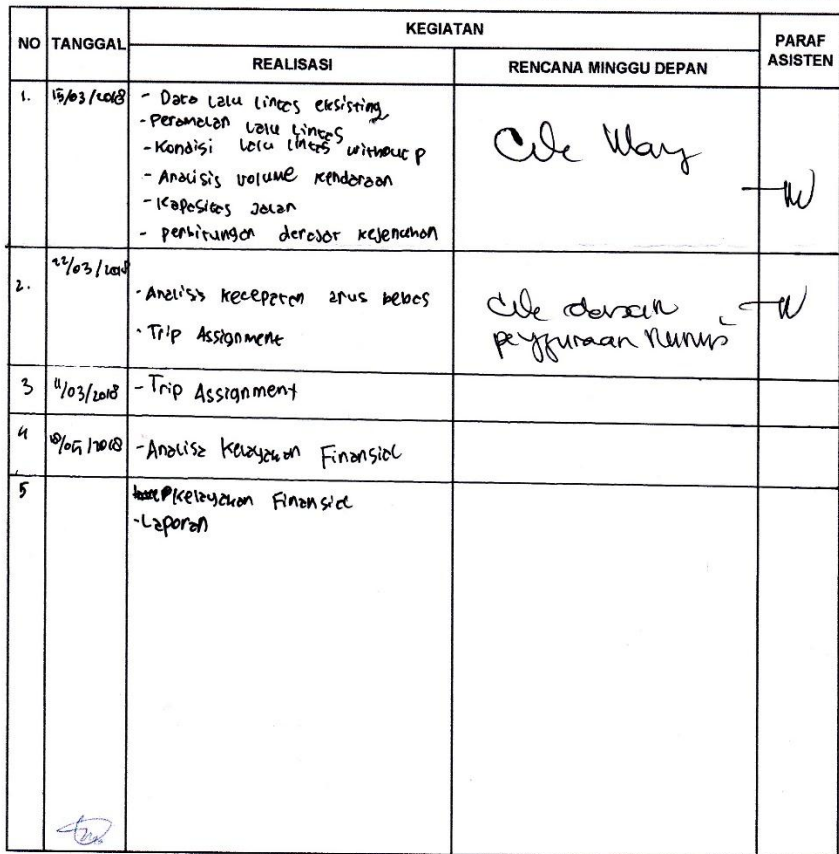 NO TANGGAL KEGIATAN PARAF ASISTEN
REALISASI RENCANA MINGGU DEPAN
1. 15/03/2018 - Data Lalu Lintas eksisting
- Peramalan Lalu Lintas
- Kondisi Lalu Lintas without P
- Analisis volume kendaraan
- Kapasitas Jalan
- perhitungan derajat kejenuhan
Cek
2. 22/03/2018
- Analisis kecepatan arus bebas
- Trip Assignment
Cek dasar
penggunaan rumus
3 /03/2018 - Trip Assignment
4 /2018 - Analisa Kelayakan Finansial
5 Kelayakan Finansial
- Laporan